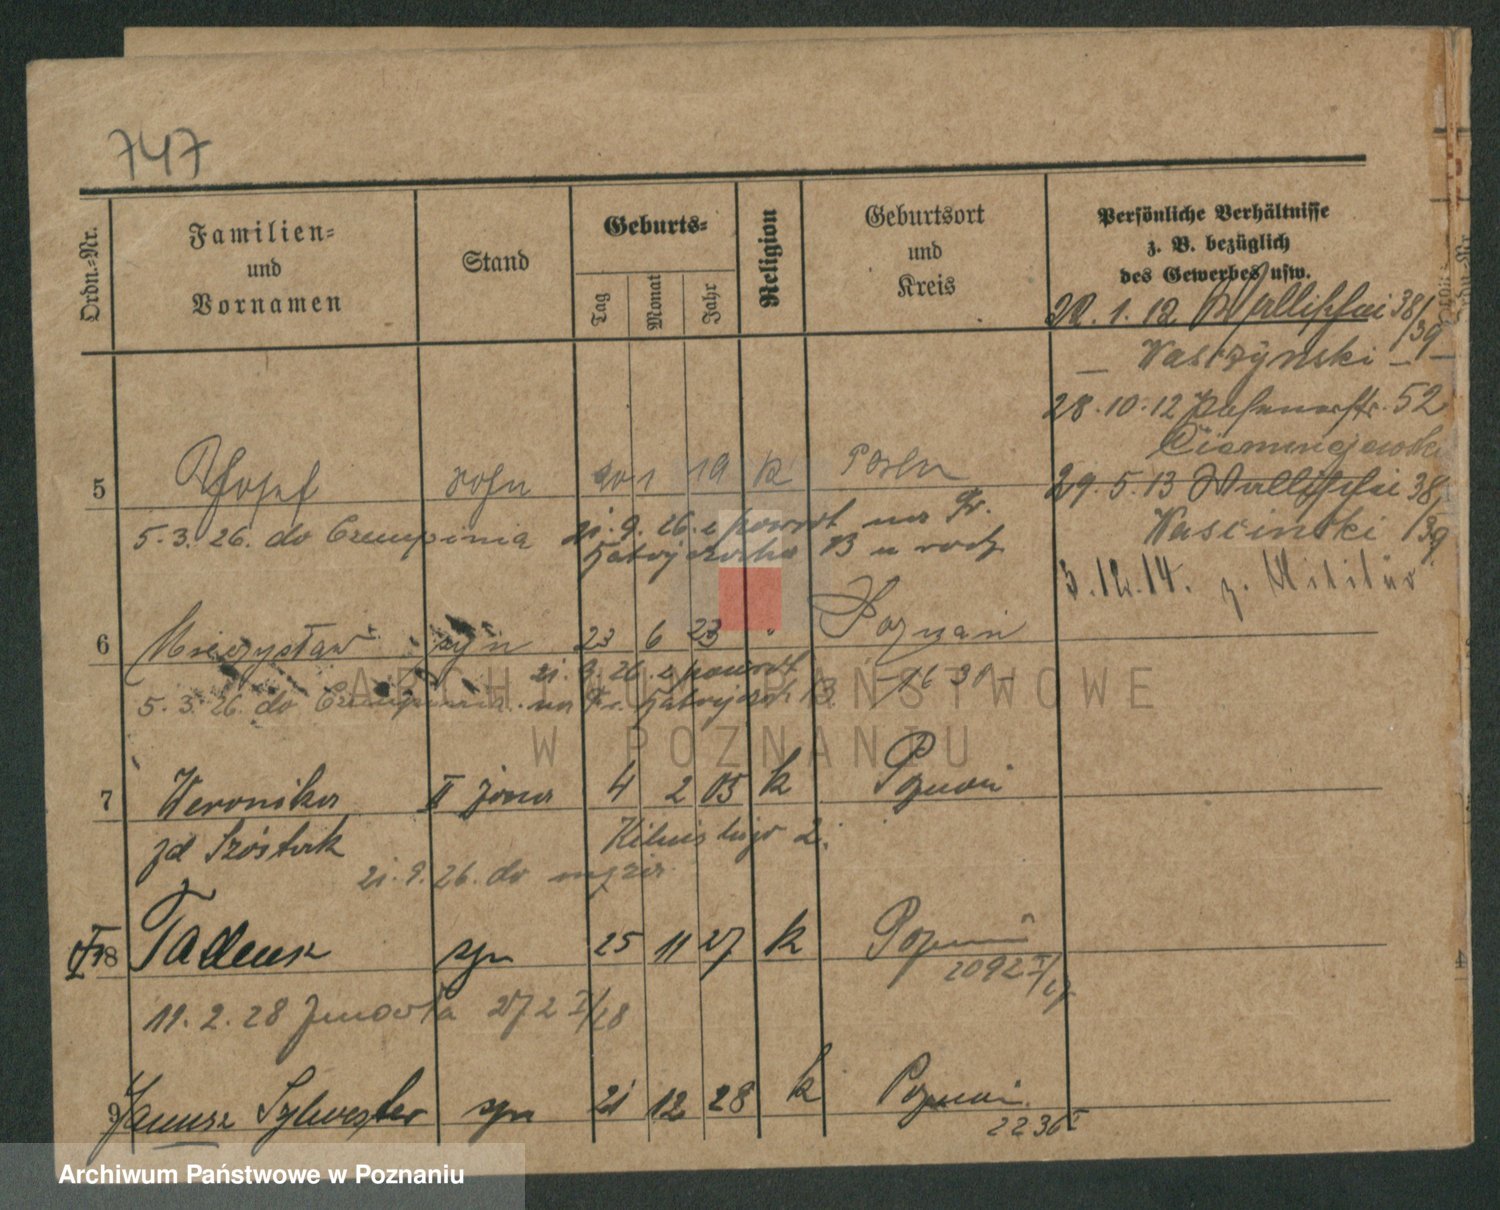 747
Ordn.-Nr.
Familien-
und
Vornamen
Stand
Geburts-
Tag
Monat
Jahr
Religion
Geburtsort
und
Kreis
Persönliche Verhältnisse
z. B. bezüglich
des Gewerbes usw.
22. 1. 12 Wallischei 38/39
— Waszynski —
28. 10. 12 52
29. 5. 13 Wallischei 38/39
Wascinski
3. 12. 14. z. Militär
5 Josef Sohn 1 19 k Posen
5. 3. 26. do Czempinia 21. 9. 26. z powrót na
13 u rodz
6 Mieczysław syn 23 6 23 " Poznań
21. 9. 26. z powrót
5. 3. 26. do Czempinia na 13.
7 Weronika II żona 4 2 05 k Poznań
zd Szóstak 2.
21. 9. 26. do męża
8 Tadeusz syn 25 11 27 k Poznań
2092 I/27
11. 2. 28 272 I/28
9 Janusz Sylwester syn 21 12 28 k Poznań
2236 I
ARCHIWUM PAŃSTWOWE
W POZNANIU
Archiwum Państwowe w Poznaniu